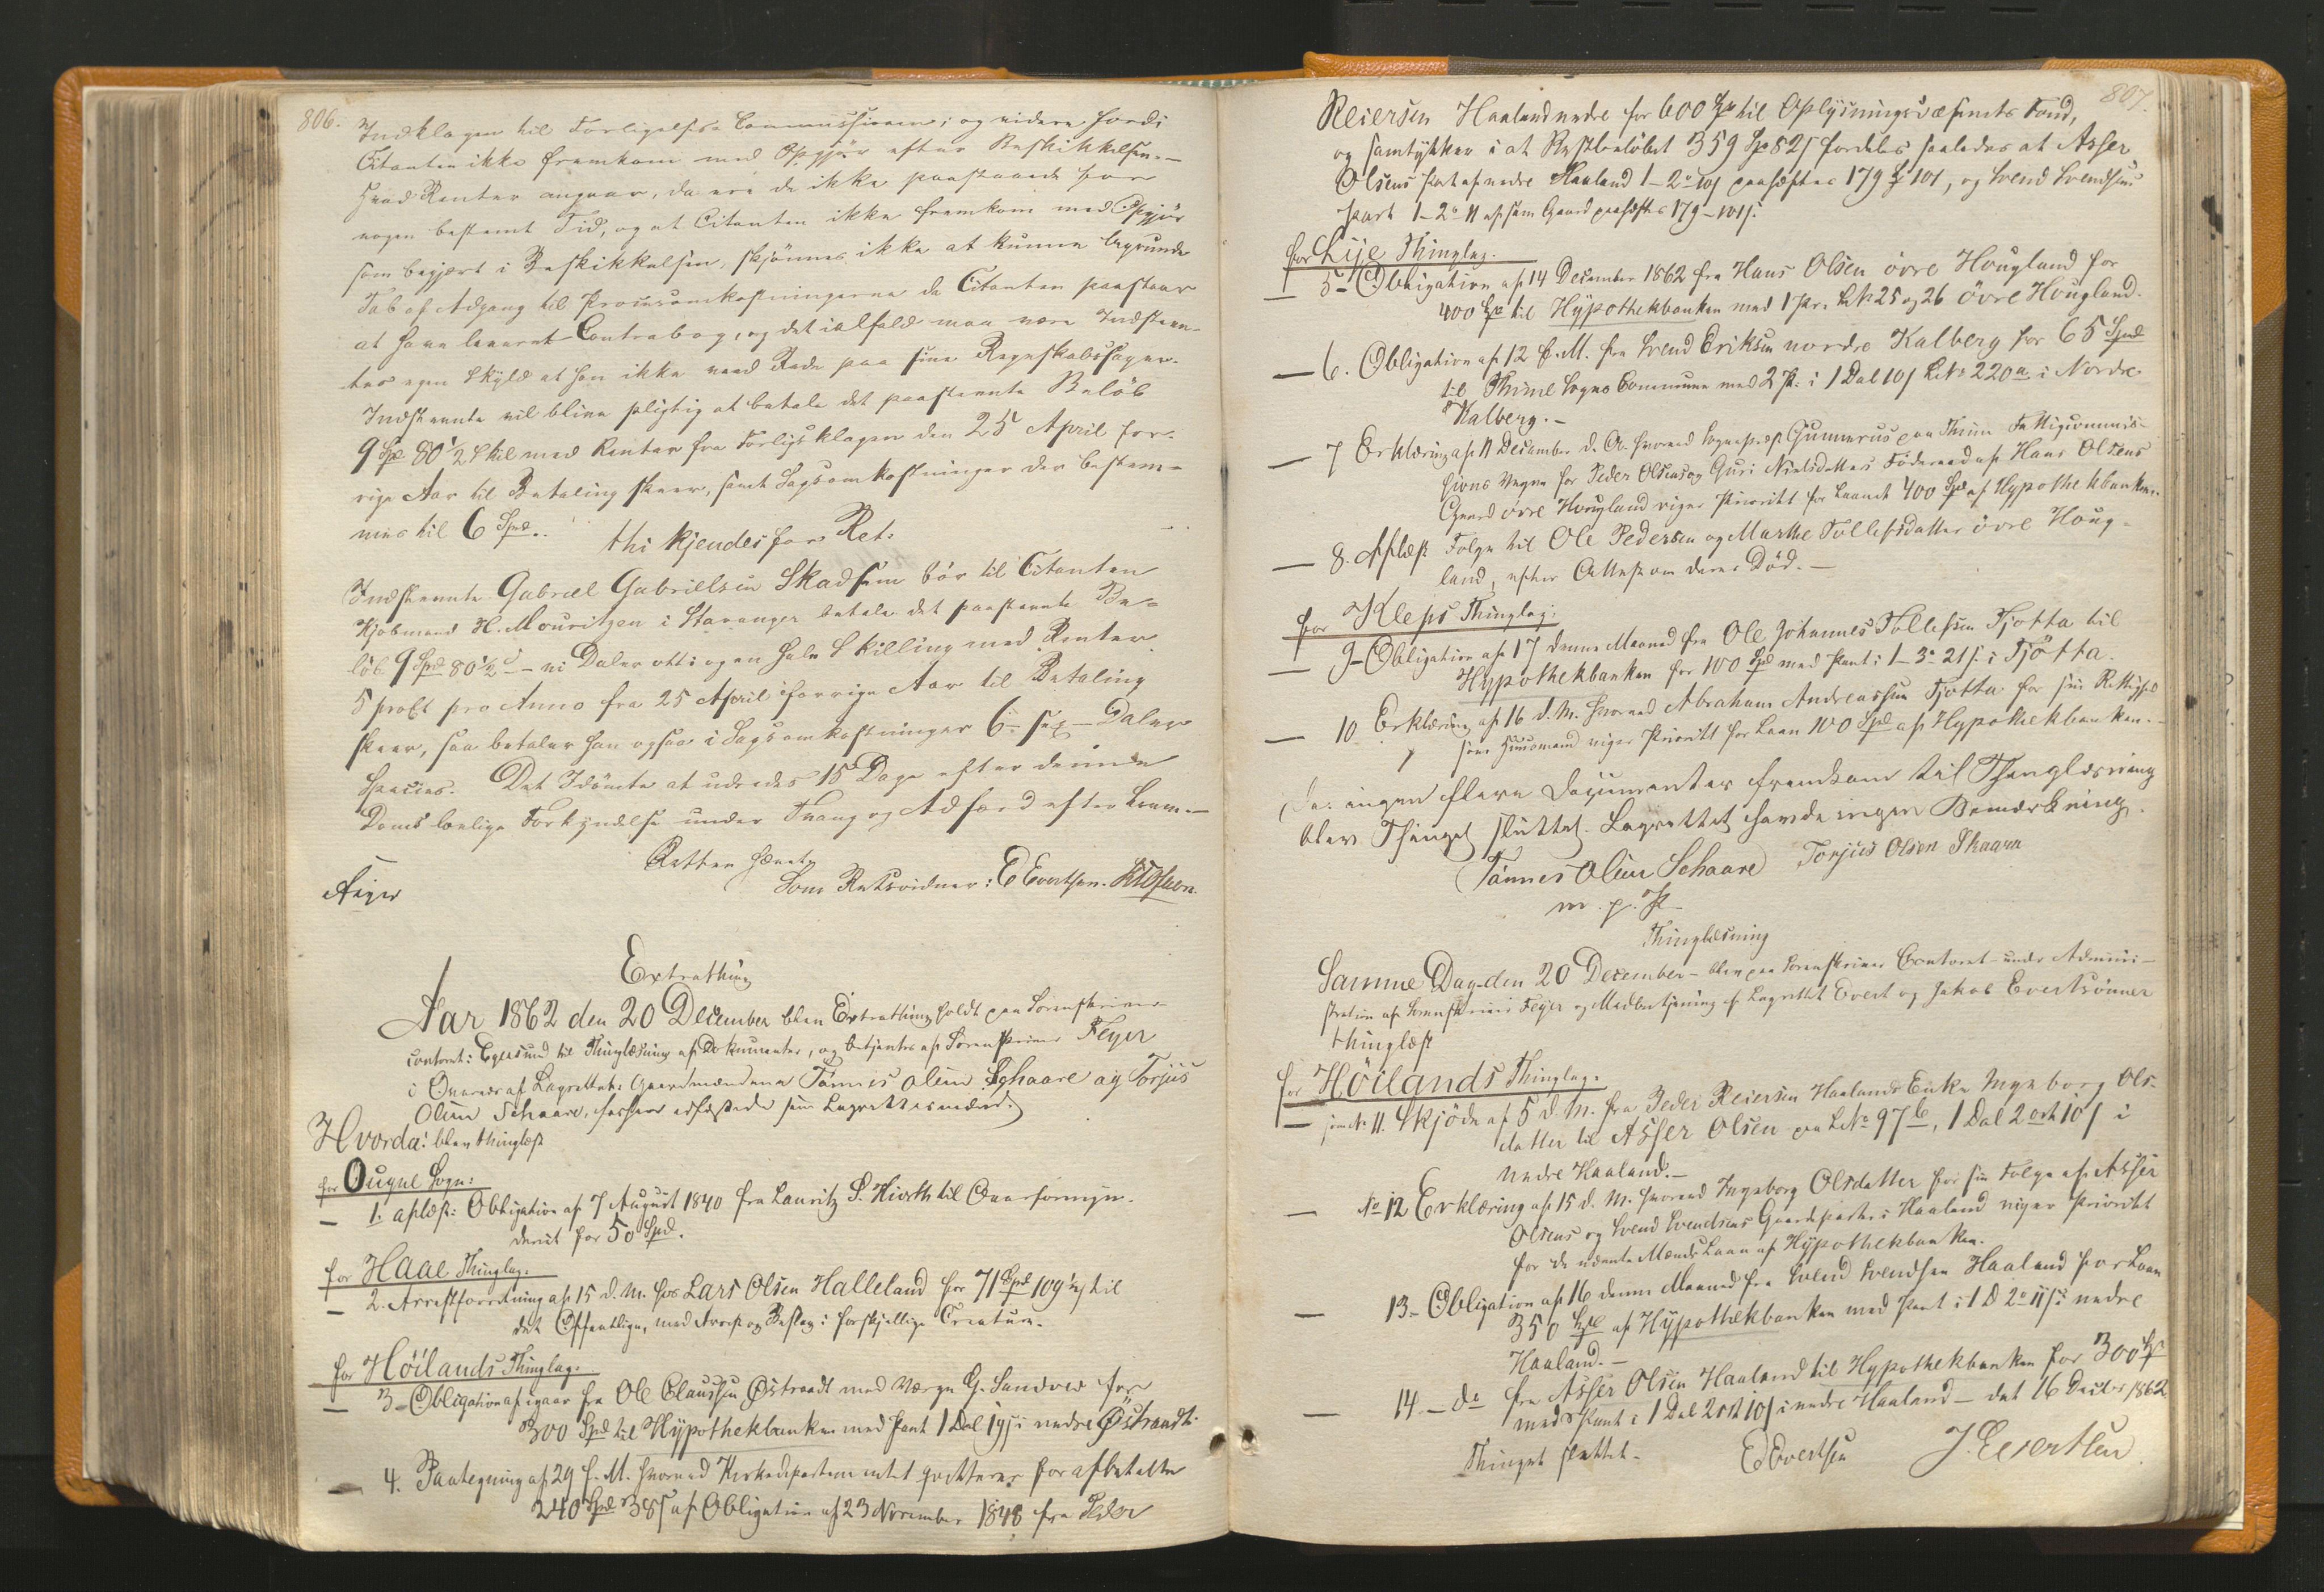 806.
Indklagen til Forligelses Commissionen; og videre fordi
Citanten ikke fremkom med Opgjør efter Beskikkelsen. —
Hvad Renter angaar, da ere de ikke paastaaede for
nogen bestemt Tid, og at Citanten ikke fremkom med Opgjør
som begjært i Beskikkelsen, skjønnes ikke at kunne begrunde
Tab af Adgang til Procesomkostningerne da Citanten paastaar
at have leveret Contrabog, og det ialfald maa være Indstevn-
tes egen Skyld at han ikke veed Rede paa sine Regnskabssager.
Indstevnte vil blive pligtig at betale det paastevnte Beløb
9 Spd 80 1/2 Skil med Renter fra Forligsklagen den 25 April for-
rige Aar til Betaling skeer, samt Sagsomkostninger der bestem-
mes til 6 Spd.
thi kjendes for Ret:
Indstevnte Gabriel Gabrielsen Skadsem bør til Citanten
Kjøbmand H. Mouritzen i Stavanger betale det paastevnte Be-
løb 9 Spd 80 1/2 s – ni Daler otti og en halv Skilling med Renter
5 proCt pro Anno fra 25 April forrige Aar til Betaling
skeer, saa betaler han ogsaa i Sagsomkostninger 6 – sex – Daler
Species. Det Idømte at udredes 15 Dage efter denne
Doms lovlige Forkyndelse under Tvang og Adfærd efter Loven. —
Retten hævet
Feyer
Som Retsvidner: E Evertsen.
Extrathing
Aar 1862 den 20 December blev Extrathing holdt paa Sorenskriver
contoret i Egersund til Thinglæsning af Dokumenter, og betjentes af Sorenskriver Feyer
i Overvær af Lagrettet: Gaardmændene Tønnes Olsen Schaare og Torjus
Olsen Schaare, forhen edfæstede som Lagrettesmænd.
Hvorda: blev thinglæst
for Ougne Sogn:
— 1. aflæst: Obligation af 7 August 1840 fra Lauritz S. Hiorth til Overformyn-
deriet for 50 Spd.
for Haae Thinglag:
— 2. Arrestforretning af 15 d. M. hos Lars Olsen Halleland for 71 Spd 109 1/2 s til
det Offentlige, med Arrest og Beslag i forskjellige Creature.
for Höilands Thinglag:
— 3 – Obligation af igaar fra Ole Claussen Østraadt med Værge G. Sandved for
300 Spd til Hypothekbanken med Pant 1 Dal 19 s i nedre Østraadt.
— 4. Paategning af 29 f. M. hvorved Kirkedepartementet qvitterer for afbetalte
240 Spd 38 s af Obligation af 23 November 1848 fra Peder
807.
Reiersen Haaland nedre for 600 Spd til Oplysningsvæsenets Fond,
og samtykker i at Restbeløbet 359 Sp 82 s fordeles saaledes at Asser
Olsens Part af nedre Haaland 1 – 2 o 10 s paahæftes 179 Sp 101, og Svend Svendsens
Part 1 – 2 o 11 af samme Gaard paahæftes 179 – 101 s.
for Lije Thinglag.
— 5 – Obligation af 14 December 1862 fra Hans Olsen övre Hougland for
400 Spd til Hypothekbanken med 1 Pr. i L.N. 25 og 26 övre Hougland.
— 6. Obligation af 12 f. M. fra Svend Eriksen nordre Kalberg for 65 Spd
til Thime Sogns Commune med 2 Pr. i 1 Dal 10 s L.No 220 a i Nordre
Kalberg. –
— 7 Erklæring af 11 December d. A. hvorved Sogneprest Gunnerus paa Thime Fattigcommis-
sions Vegne for Peder Olsens og Guri Nielsdatters Föderaad af Hans Olsens
Gaard övre Hougland viger Prioritet for Laanet 400 Spd af Hypothekbanken.
— 8. Aflæst Folge til Ole Pedersen og Marthe Tollefsdatter övre Houg-
land, efter Attest om deres Död. —
for Kleps Thinglag:
— 9 – Obligation af 17 denne Maaned fra Ole Johannes Tollefsen Tjotta til
Hypothekbanken for 100 Spd med Pant i 1 – 3 o 21 s i Tjötta.
— 10 Erklæring af 16 d. M. hvorved Abraham Andreassen Tjotta for sin Rettighed
som Huusmand viger Prioritet for Laan 100 Spd af Hypothekbanken. —
Da ingen flere Documenter fremkom til Thinglæsning
blev Thinget sluttet. Lagrettet havde ingen Bemærkning.
Tønnes Olsen Schaare Torjus Olsen Skaara
m. p. P.
Thinglæsning
Samme Dag – den 20 December – blev paa Sorenskriver Contoret – under Admini-
stration af Sorenskriver Feyer og Medbetjening af Lagrettet Evert og Jakob Evertsönner
thinglæst
for Höilands Thinglag:
— som No 11. Skjöde af 5 d. M. fra Peder Reiersen Haalands Enke Ingeborg Ols-
datter til Asser Olsen paa L.No 97 b, 1 Dal 2 ort 10 s i
nedre Haaland. —
— No 12 Erklæring af 15 d. M. hvorved Ingeborg Olsdatter for sin Folge af Asser
Olsens og Svend Svendsens Gaardparter i Haaland viger Prioritet
for de nævnte Mænds Laan af Hypothekbanken.
— 13 – Obligation af 16 denne Maaned fra Svend Svendsen Haaland for Laan
350 Spd af Hypothekbanken med Pant i 1 D 2 o 11 s i nedre
Haaland. —
— 14 – do fra Asser Olsen Haaland til Hypothekbanken for 300 Sp
med Pant i 1 Dal 2 ort 10 s i nedre Haaland – dat 16 Decbr 1862
Thinget sluttet. E Evertsen J. Evertsen